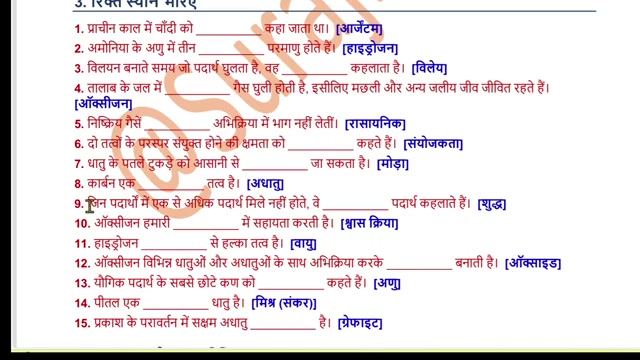 3. रिक्त स्थान भरिए
1. प्राचीन काल में चाँदी को __________ कहा जाता था। [आर्जेंटम]
2. अमोनिया के अणु में तीन __________ परमाणु होते हैं। [हाइड्रोजन]
3. विलयन बनाते समय जो पदार्थ घुलता है, वह __________ कहलाता है। [विलेय]
4. तालाब के जल में __________ गैस घुली होती है, इसीलिए मछली और अन्य जलीय जीव जीवित रहते हैं।
[ऑक्सीजन]
5. निष्क्रिय गैसें __________ अभिक्रिया में भाग नहीं लेतीं। [रासायनिक]
6. दो तत्वों के परस्पर संयुक्त होने की क्षमता को __________ कहते हैं। [संयोजकता]
7. धातु के पतले टुकड़े को आसानी से __________ जा सकता है। [मोड़ा]
8. कार्बन एक __________ तत्व है। [अधातु]
9. जिन पदार्थों में एक से अधिक पदार्थ मिले नहीं होते, वे __________ पदार्थ कहलाते हैं। [शुद्ध]
10. ऑक्सीजन हमारी __________ में सहायता करती है। [श्वास क्रिया]
11. हाइड्रोजन __________ से हल्का तत्व है। [वायु]
12. ऑक्सीजन विभिन्न धातुओं और अधातुओं के साथ अभिक्रिया करके __________ बनाती है। [ऑक्साइड]
13. यौगिक पदार्थ के सबसे छोटे कण को __________ कहते हैं। [अणु]
14. पीतल एक __________ धातु है। [मिश्र (संकर)]
15. प्रकाश के परावर्तन में सक्षम अधातु __________ है। [ग्रेफाइट]